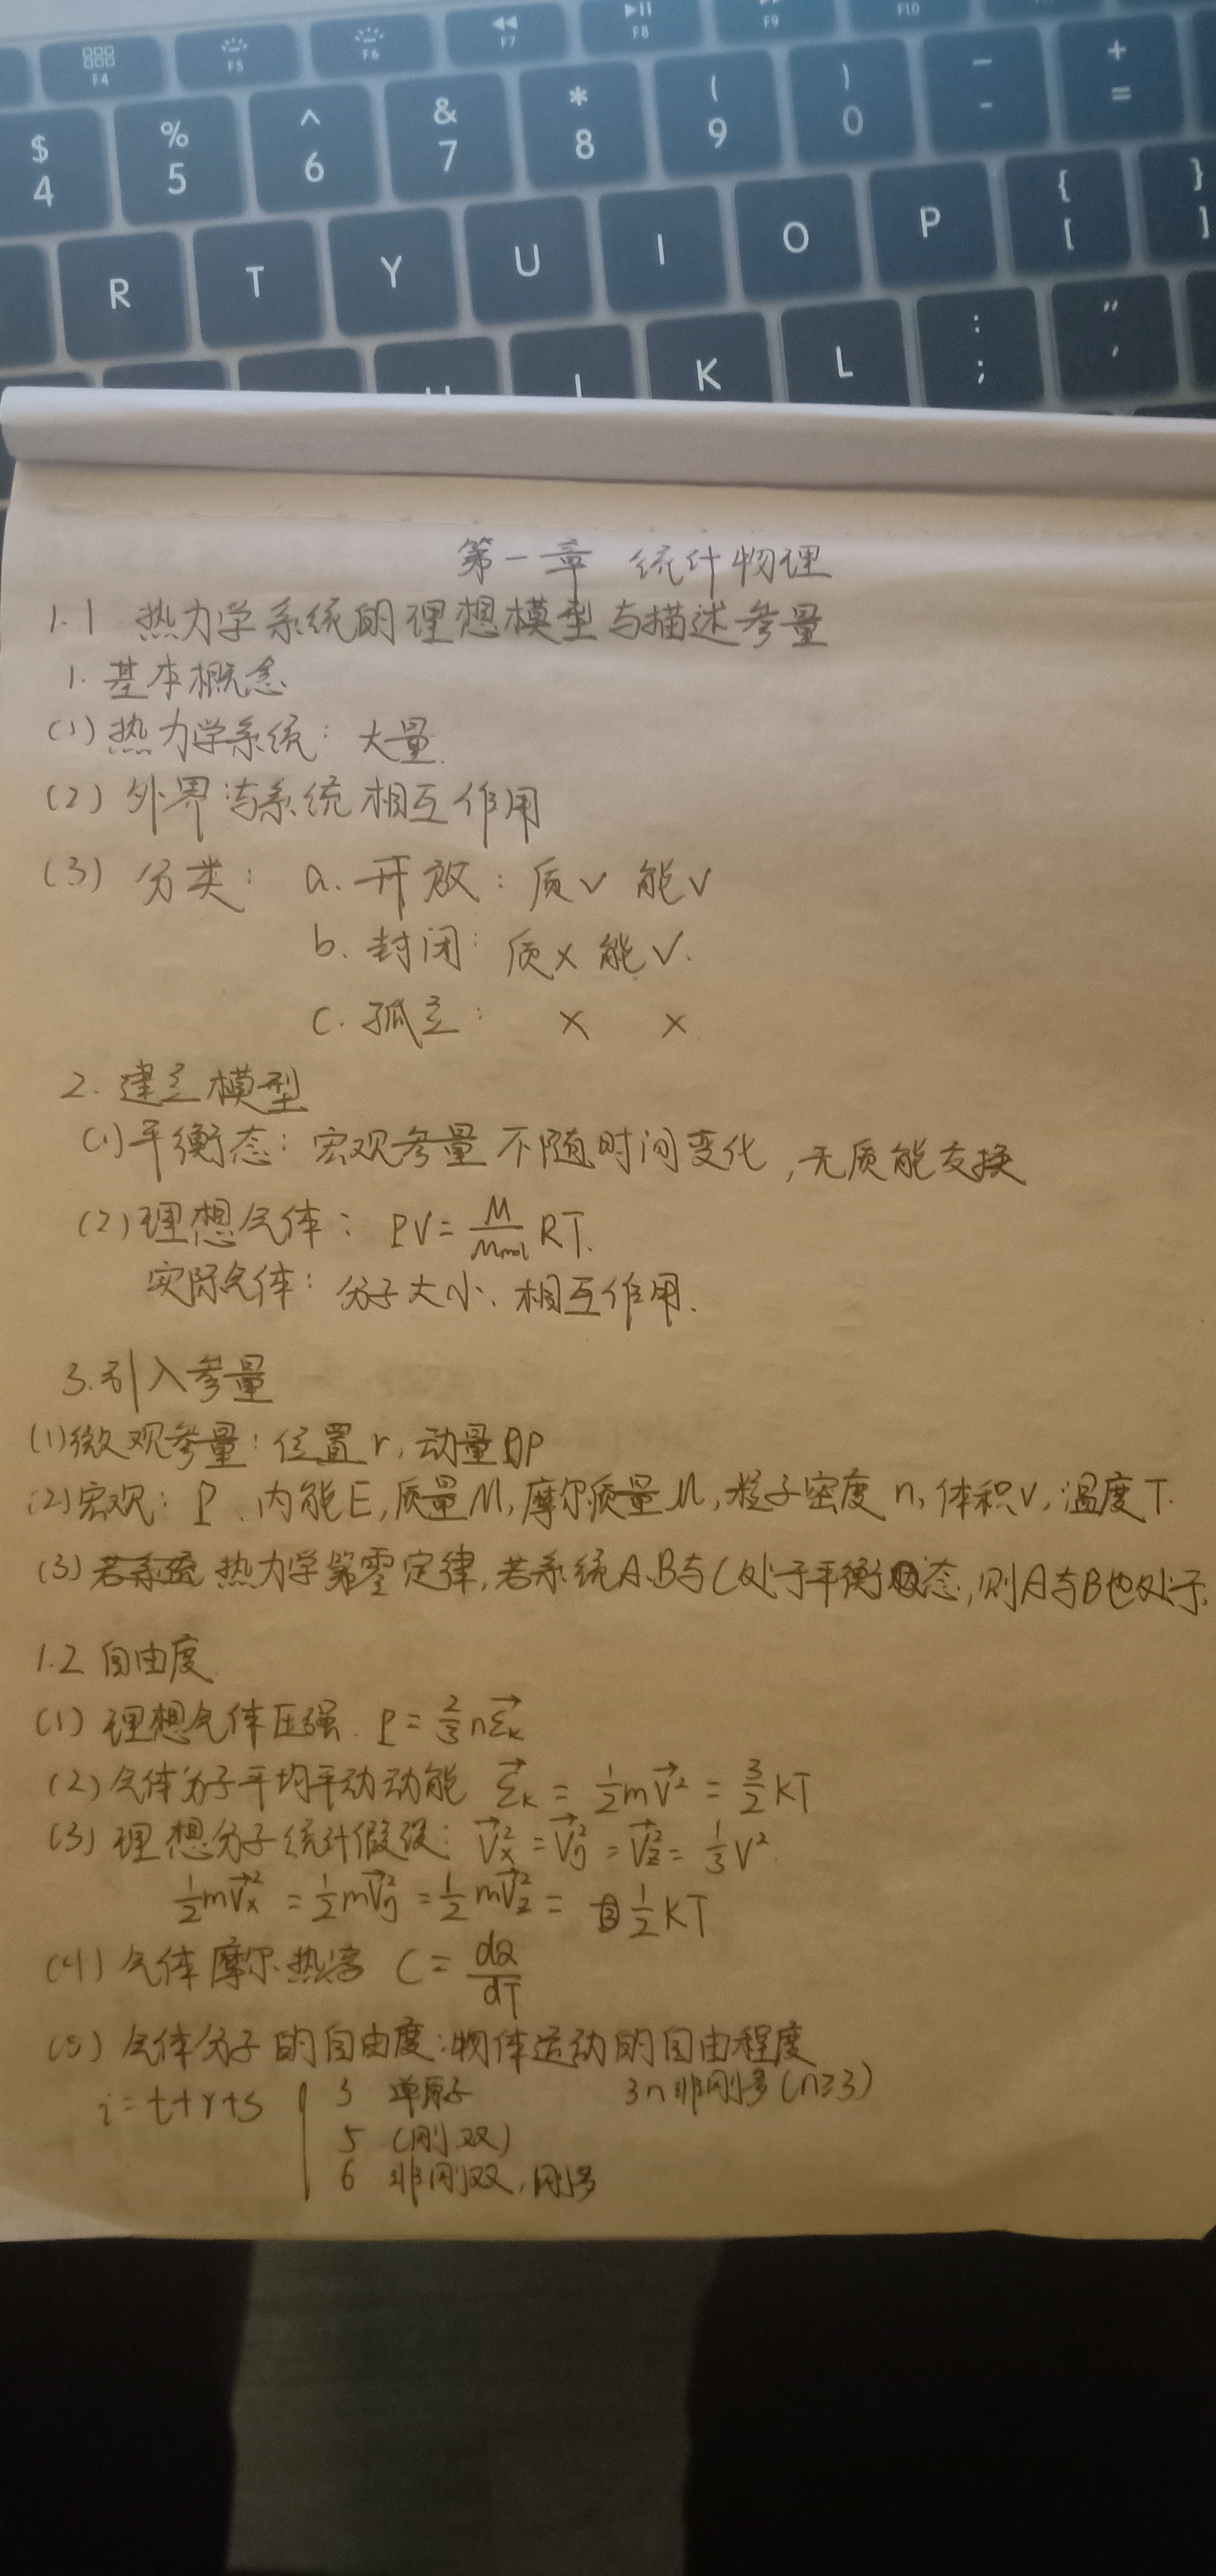 F4 F5 F6 F7 F8 F9 F10
$ 4 % 5 ^ 6 & 7 * 8 ( 9 ) 0 — - + =
R T Y U I O P { [ } ]
K L : ; " '
第一章 统计物理
1.1 热力学系统的理想模型与描述参量
1. 基本概念
(1) 热力学系统: 大量.
(2) 外界:与系统相互作用
(3) 分类: a. 开放: 质√ 能√
b. 封闭: 质× 能√.
c. 孤立: × ×
2. 建立模型
(1) 平衡态: 宏观参量不随时间变化,无质能交换
(2) 理想气体: PV = M/Mmol RT.
实际气体: 分子大小、相互作用.
3. 引入参量
(1) 微观参量: 位置r, 动量P
(2) 宏观: P、内能E, 质量M, 摩尔质量M, 粒子密度n, 体积V, 温度T.
(3) 若系统 热力学第零定律, 若系统A、B与C处于平衡态, 则A与B也处于.
1.2 自由度
(1) 理想气体压强. P = 2/3 n\vec{ε}_k
(2) 气体分子平均平动动能 \vec{ε}_k = 1/2 m\vec{V}² = 3/2 KT
(3) 理想分子统计假设: \vec{V}_x² = \vec{V}_y² = \vec{V}_z² = 1/3 V²
1/2 m\vec{V}_x² = 1/2 m\vec{V}_y² = 1/2 m\vec{V}_z² = 1/2 KT
(4) 气体摩尔热容 C = dQ/dT
(5) 气体分子的自由度:物体运动的自由程度
i = t+r+s 3 单原子 3n 非刚多 (n≥3)
5 (刚双)
6 非刚双, 刚多